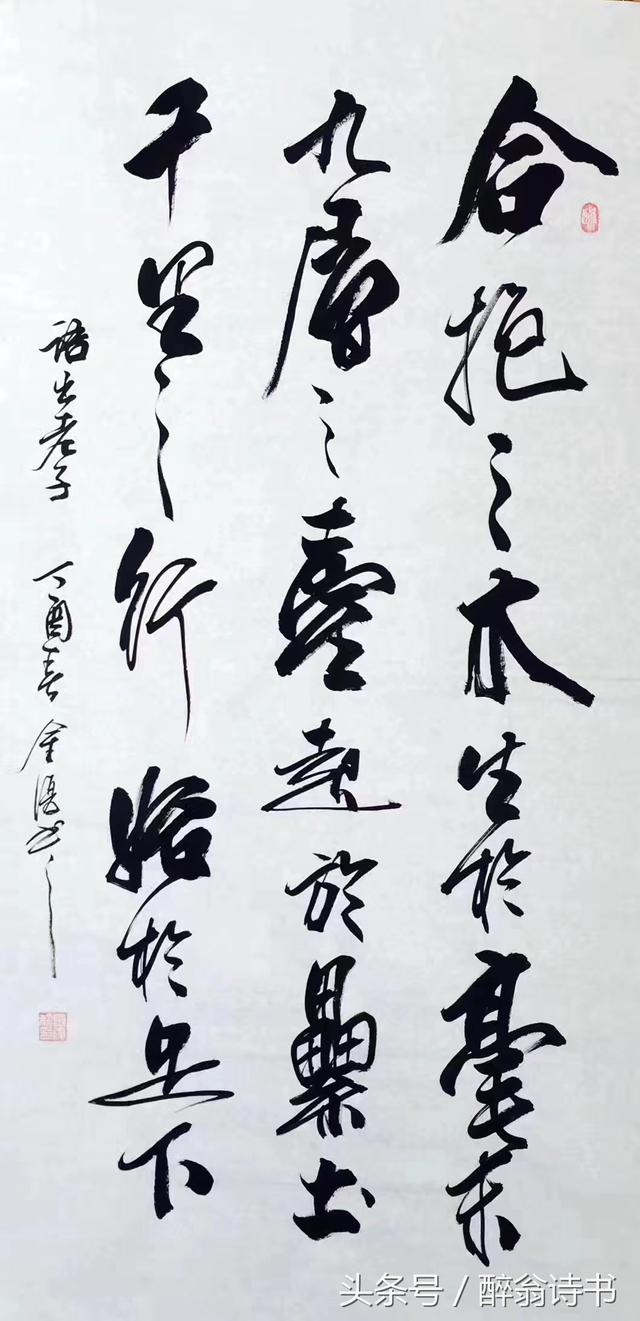 合抱之木生於毫末
九層之臺起於纍土
千里之行始於足下
語出老子 丁酉春 金
书之
头条号 / 醉翁诗书